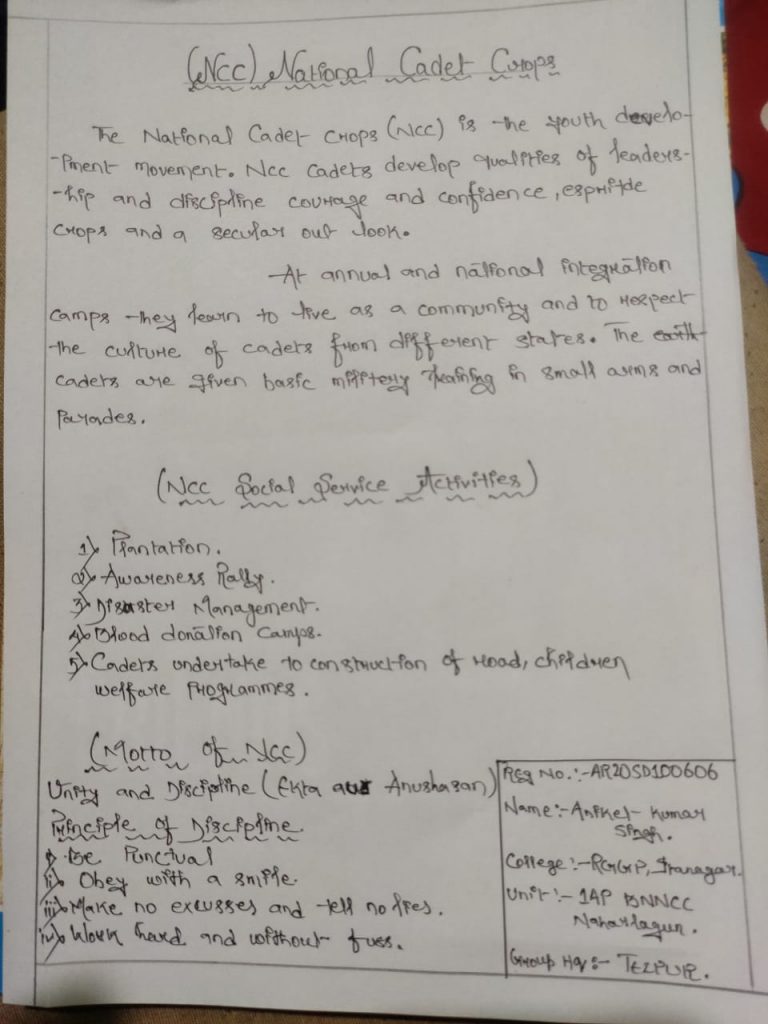 (NCC) National Cadet Crops
The National Cadet Crops (NCC) is the youth develo-
-pment movement. NCC Cadets develop qualities of leaders-
-hip and discipline courage and confidence, espritde
Crops and a secular out look.
At annual and national integration
camps they learn to live as a community and to respect
the culture of cadets from different states. The
cadets are given basic militery training in small arms and
Parades.
(NCC Social Service Activities)
1) Plantation.
2) Awareness Rally.
3) Disaster Management.
4) Blood donation Camps.
5) Cadets undertake to construction of road, children
welfare Programmes.
(Motto of NCC)
Unity and Discipline (Ekta aur Anushasan)
Principle of Discipline
i) Be Punctual
ii) Obey with a smile.
iii) Make no excusses and tell no lies.
iv) Work hard and without fuss.
Reg No.:- AR20SD100606
Name:- Aniket Kumar
Singh.
College:- RGGP, Itanagar.
Unit:- 1AP BNNCC
Naharlagun.
Group Hq:- TEZPUR.